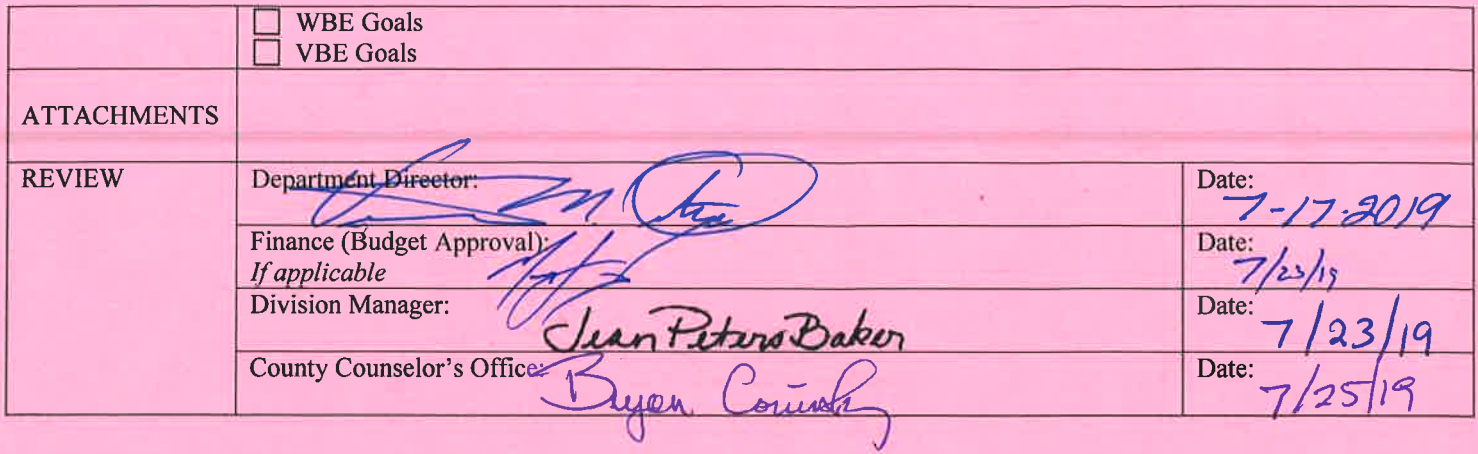 WBE Goals
VBE Goals
ATTACHMENTS
REVIEW
Department Director:
Date:
7-17-2019
Finance (Budget Approval):
If applicable
Date:
7/23/19
Division Manager:
Jean Peters Baker
Date:
7/23/19
County Counselor's Office:
Bryan
Date:
7/25/19